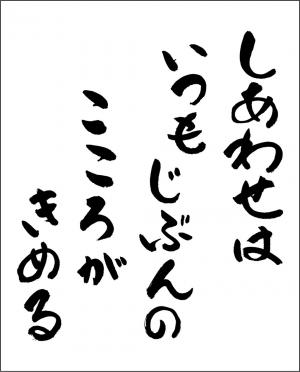 しあわせは
いつもじぶんの
こころが
きめる